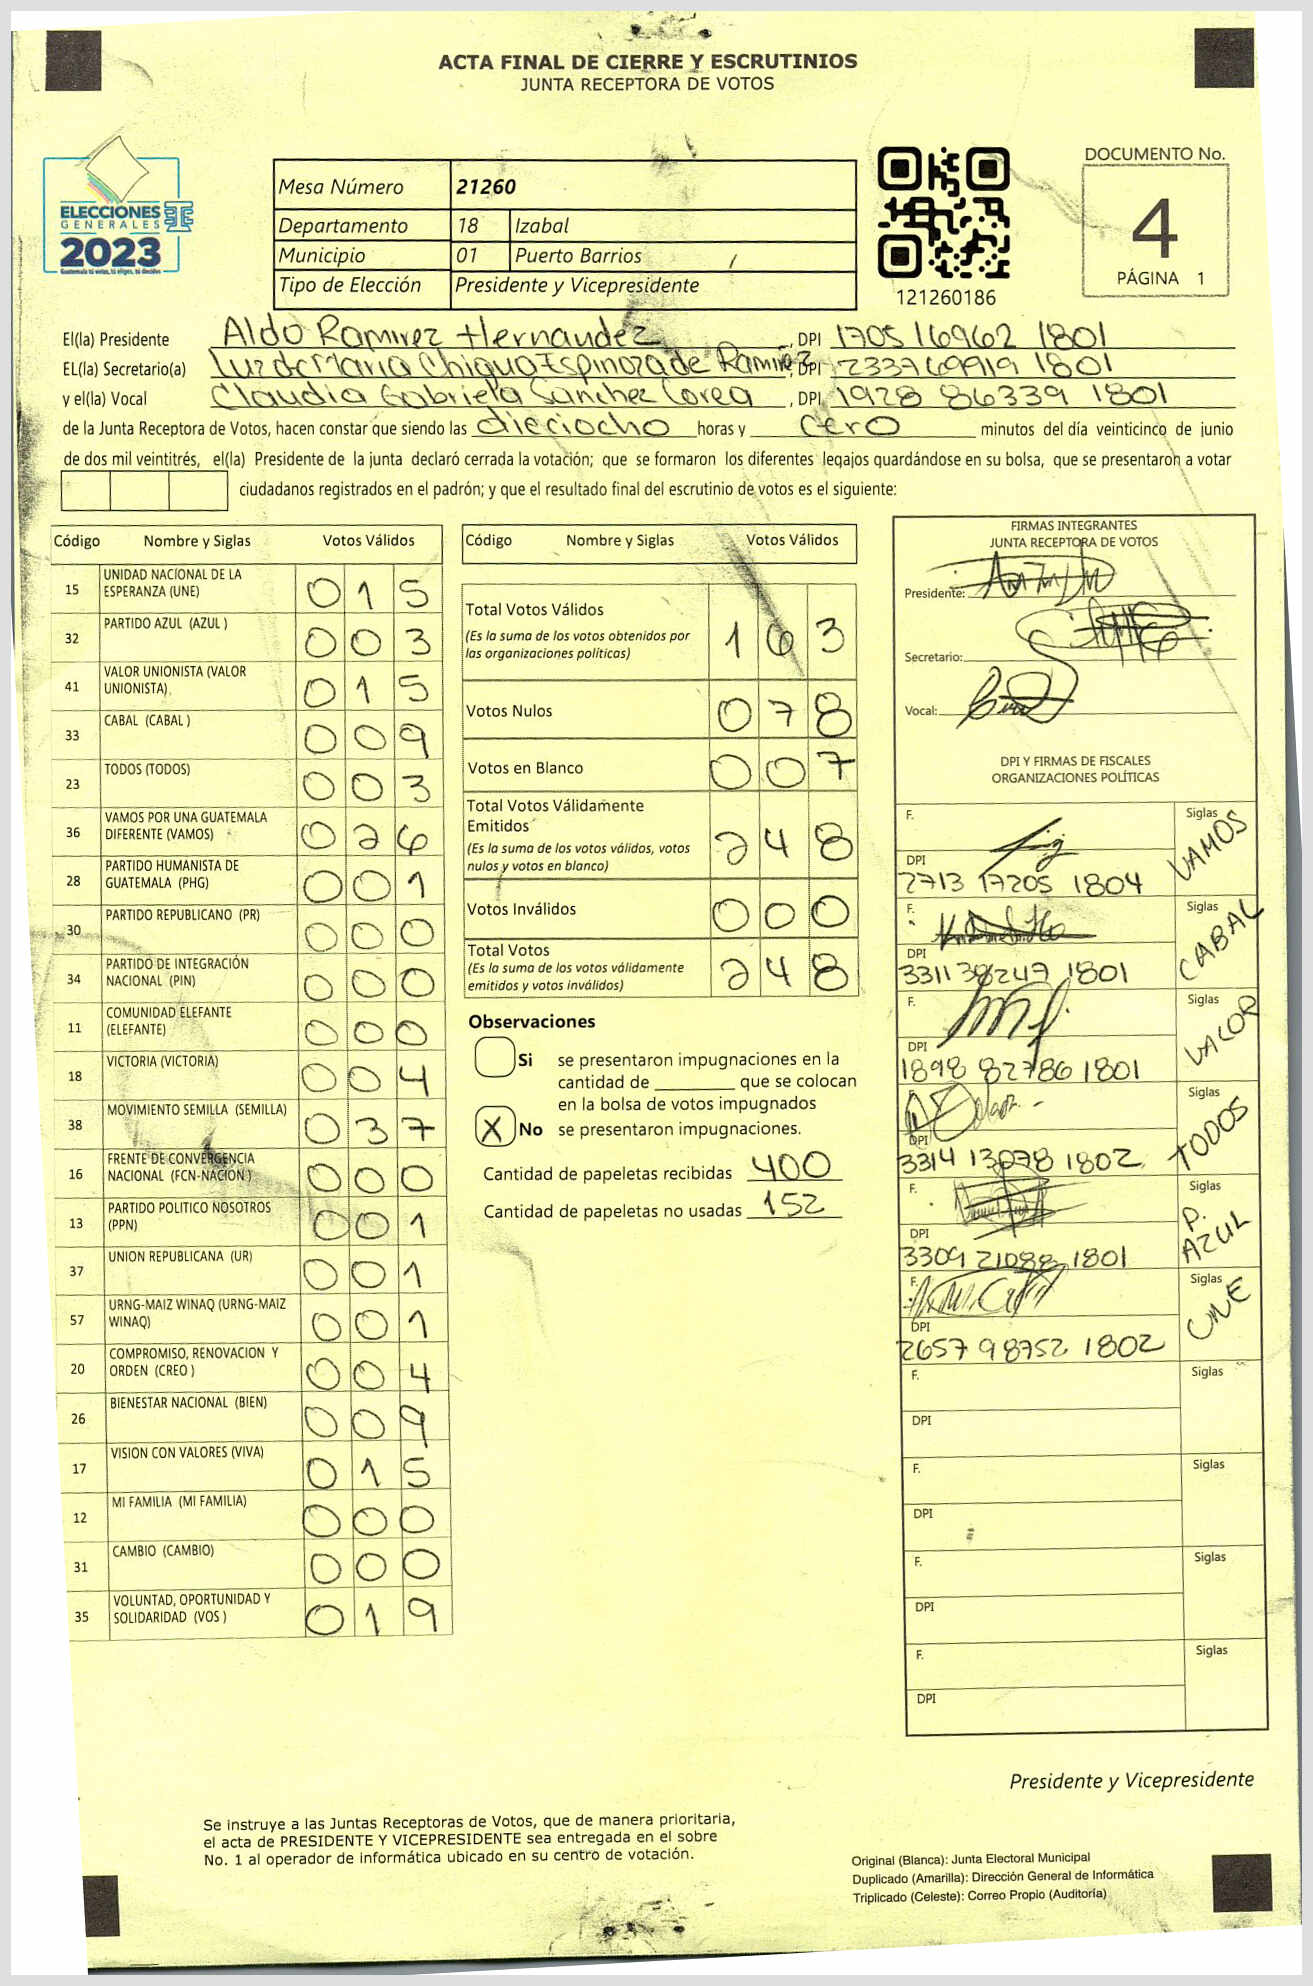 ACTA FINAL DE CIERRE Y ESCRUTINIOS
JUNTA RECEPTORA DE VOTOS
ELECCIONES
GENERALES
2023
Guatemala tú votas, tú eliges, tú decides
Mesa Número 21260
Departamento 18 Izabal
Municipio 01 Puerto Barrios
Tipo de Elección Presidente y Vicepresidente
121260186
DOCUMENTO No.
4
PÁGINA 1
El(la) Presidente Aldo Ramirez Hernandez, DPI 1705 16962 1801
EL(la) Secretario(a) Luz de Maria Chigua Espinoza de Ramirez, DPI 2337 69919 1801
y el(la) Vocal Claudia Gabriela Sanchez Corea, DPI 1928 86339 1801
de la Junta Receptora de Votos, hacen constar que siendo las dieciocho horas y cero minutos del día veinticinco de junio
de dos mil veintitrés, el(la) Presidente de la junta declaró cerrada la votación; que se formaron los diferentes legajos guardándose en su bolsa, que se presentaron a votar
ciudadanos registrados en el padrón; y que el resultado final del escrutinio de votos es el siguiente:
Código Nombre y Siglas Votos Válidos
15 UNIDAD NACIONAL DE LA ESPERANZA (UNE) 015
32 PARTIDO AZUL (AZUL ) 003
41 VALOR UNIONISTA (VALOR UNIONISTA) 015
33 CABAL (CABAL ) 009
23 TODOS (TODOS) 003
36 VAMOS POR UNA GUATEMALA DIFERENTE (VAMOS) 026
28 PARTIDO HUMANISTA DE GUATEMALA (PHG) 001
30 PARTIDO REPUBLICANO (PR) 000
34 PARTIDO DE INTEGRACIÓN NACIONAL (PIN) 000
11 COMUNIDAD ELEFANTE (ELEFANTE) 000
18 VICTORIA (VICTORIA) 004
38 MOVIMIENTO SEMILLA (SEMILLA) 037
16 FRENTE DE CONVERGENCIA NACIONAL (FCN-NACION ) 000
13 PARTIDO POLITICO NOSOTROS (PPN) 001
37 UNION REPUBLICANA (UR) 001
57 URNG-MAIZ WINAQ (URNG-MAIZ WINAQ) 001
20 COMPROMISO, RENOVACION Y ORDEN (CREO ) 004
26 BIENESTAR NACIONAL (BIEN) 009
17 VISION CON VALORES (VIVA) 015
12 MI FAMILIA (MI FAMILIA) 000
31 CAMBIO (CAMBIO) 000
35 VOLUNTAD, OPORTUNIDAD Y SOLIDARIDAD (VOS ) 019
Código Nombre y Siglas Votos Válidos
Total Votos Válidos 163
(Es la suma de los votos obtenidos por
las organizaciones políticas)
Votos Nulos 078
Votos en Blanco 007
Total Votos Válidamente
Emitidos 248
(Es la suma de los votos válidos, votos
nulos y votos en blanco)
Votos Inválidos 000
Total Votos 248
(Es la suma de los votos válidamente
emitidos y votos inválidos)
Observaciones
Si se presentaron impugnaciones en la
cantidad de ________ que se colocan
en la bolsa de votos impugnados
X No se presentaron impugnaciones.
Cantidad de papeletas recibidas 400
Cantidad de papeletas no usadas 152
FIRMAS INTEGRANTES
JUNTA RECEPTORA DE VOTOS
Presidente:
Secretario:
Vocal:
DPI Y FIRMAS DE FISCALES
ORGANIZACIONES POLÍTICAS
F. Siglas VAMOS
DPI 2713 17205 1804
F. Siglas CABAL
DPI 3311 38247 1801
F. Siglas VALOR
DPI 1898 82786 1801
Siglas TODOS
DPI 3314 13078 1802
F. Siglas P. AZUL
DPI 3309 21088 1801
F. Siglas UNE
DPI 2657 98752 1802
F. Siglas
DPI
F. Siglas
DPI
F. Siglas
DPI
F. Siglas
DPI
Presidente y Vicepresidente
Se instruye a las Juntas Receptoras de Votos, que de manera prioritaria,
el acta de PRESIDENTE Y VICEPRESIDENTE sea entregada en el sobre
No. 1 al operador de informática ubicado en su centro de votación.
Original (Blanca): Junta Electoral Municipal
Duplicado (Amarilla): Dirección General de Informática
Triplicado (Celeste): Correo Propio (Auditoría)